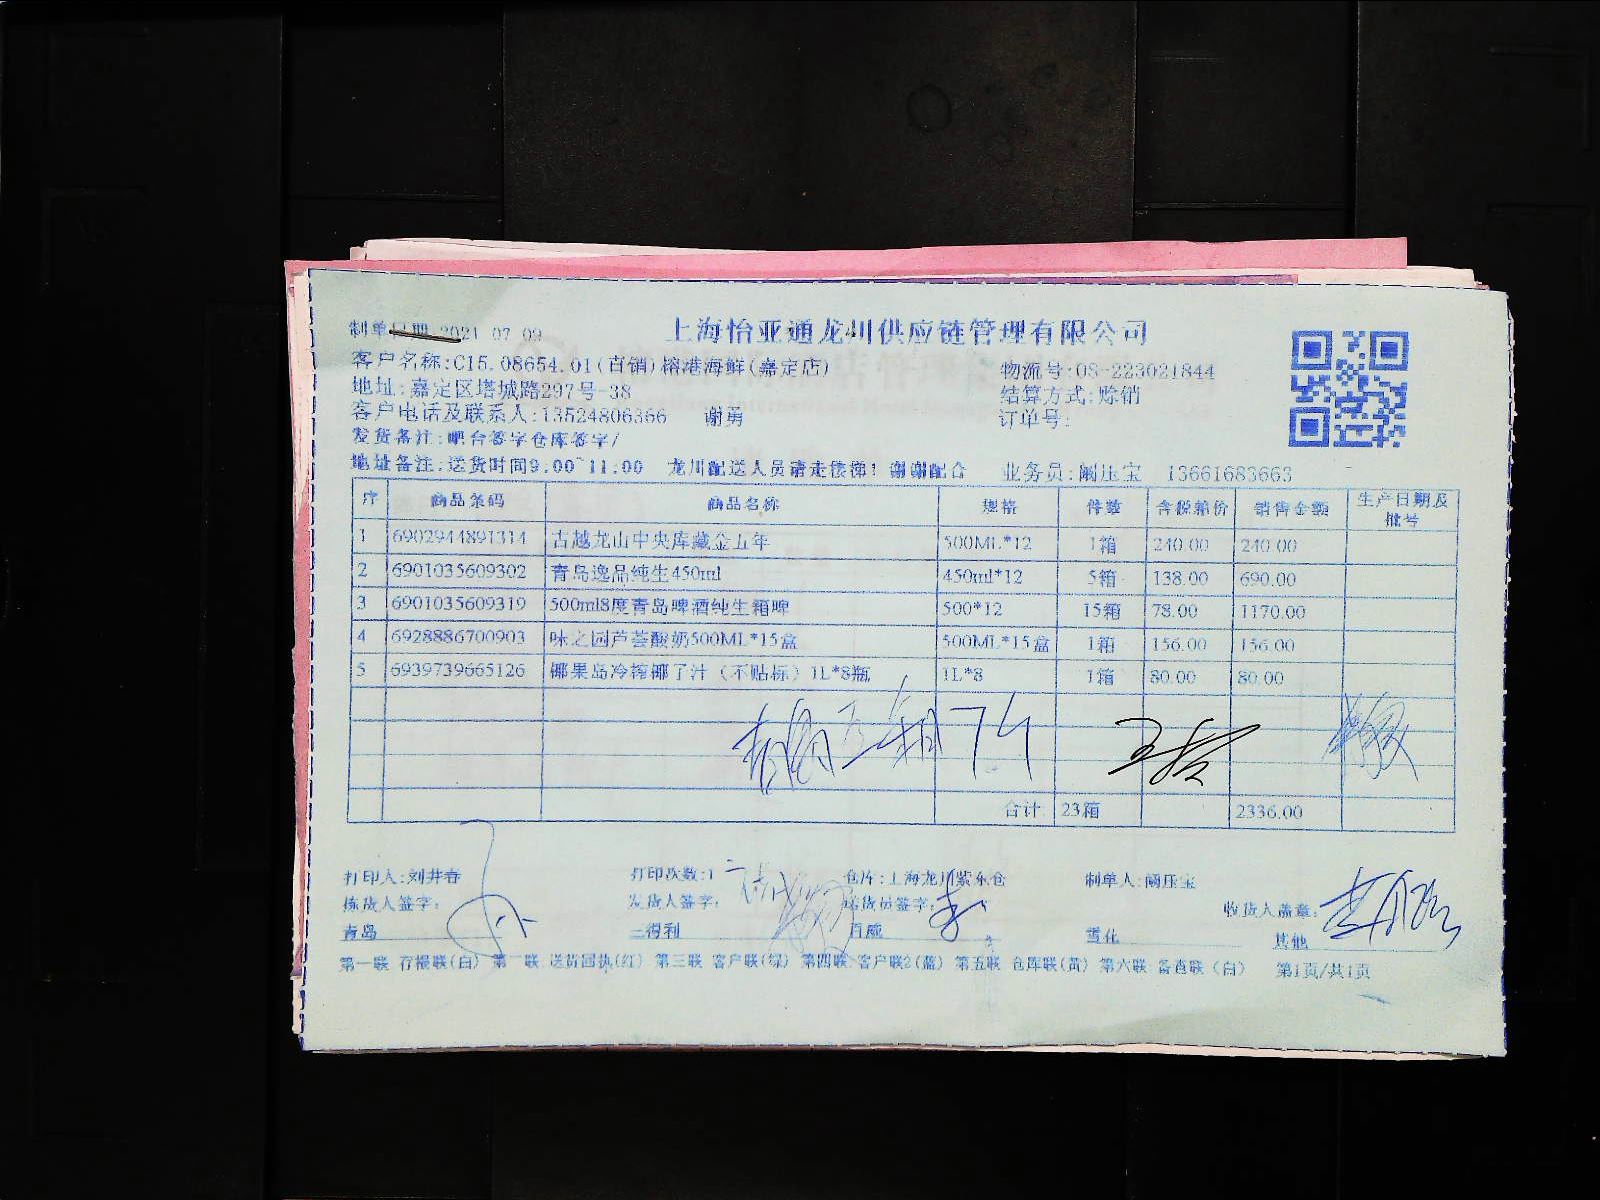 上海怡亚通龙川供应链管理有限公司
制单日期 2021 07 09
客户名称:C15.08654.01(直销)榕港海鲜(嘉定店) 物流号:08-223021844
地址:嘉定区塔城路297号-38 结算方式:赊销
客户电话及联系人:13524806366 谢勇 订单号:
发货备注:吧台签字仓库签字/
地址备注:送货时间9:00~11:00 龙川配送人员请走楼梯!谢谢配合 业务员:阚压宝 13661683663
序 商品条码 商品名称 规格 件数 含税箱价 销售金额 生产日期及批号
1 6902944891314 古越龙山中央库藏金五年 500ML*12 1箱 240.00 240.00
2 6901035609302 青岛逸品纯生450ml 450ml*12 5箱 138.00 690.00
3 6901035609319 500ml8度青岛啤酒纯生箱啤 500*12 15箱 78.00 1170.00
4 6928886700903 味之园芦荟酸奶500ML*15盒 500ML*15盒 1箱 156.00 156.00
5 6939739665126 椰果岛冷榨椰子汁(不贴标)1L*8瓶 1L*8 1箱 80.00 80.00
合计 23箱 2336.00
打印人:刘井春 打印次数:1 仓库:上海龙川紫东仓 制单人:阚压宝
拣货人签字: 发货人签字: 送货员签字: 收货人盖章:
青岛 三得利 百威 雪花 其他
第一联 存根联(白) 第二联 送货回执(红) 第三联 客户联(绿) 第四联 客户联2(蓝) 第五联 仓库联(黄) 第六联 备查联(白) 第1页/共1页